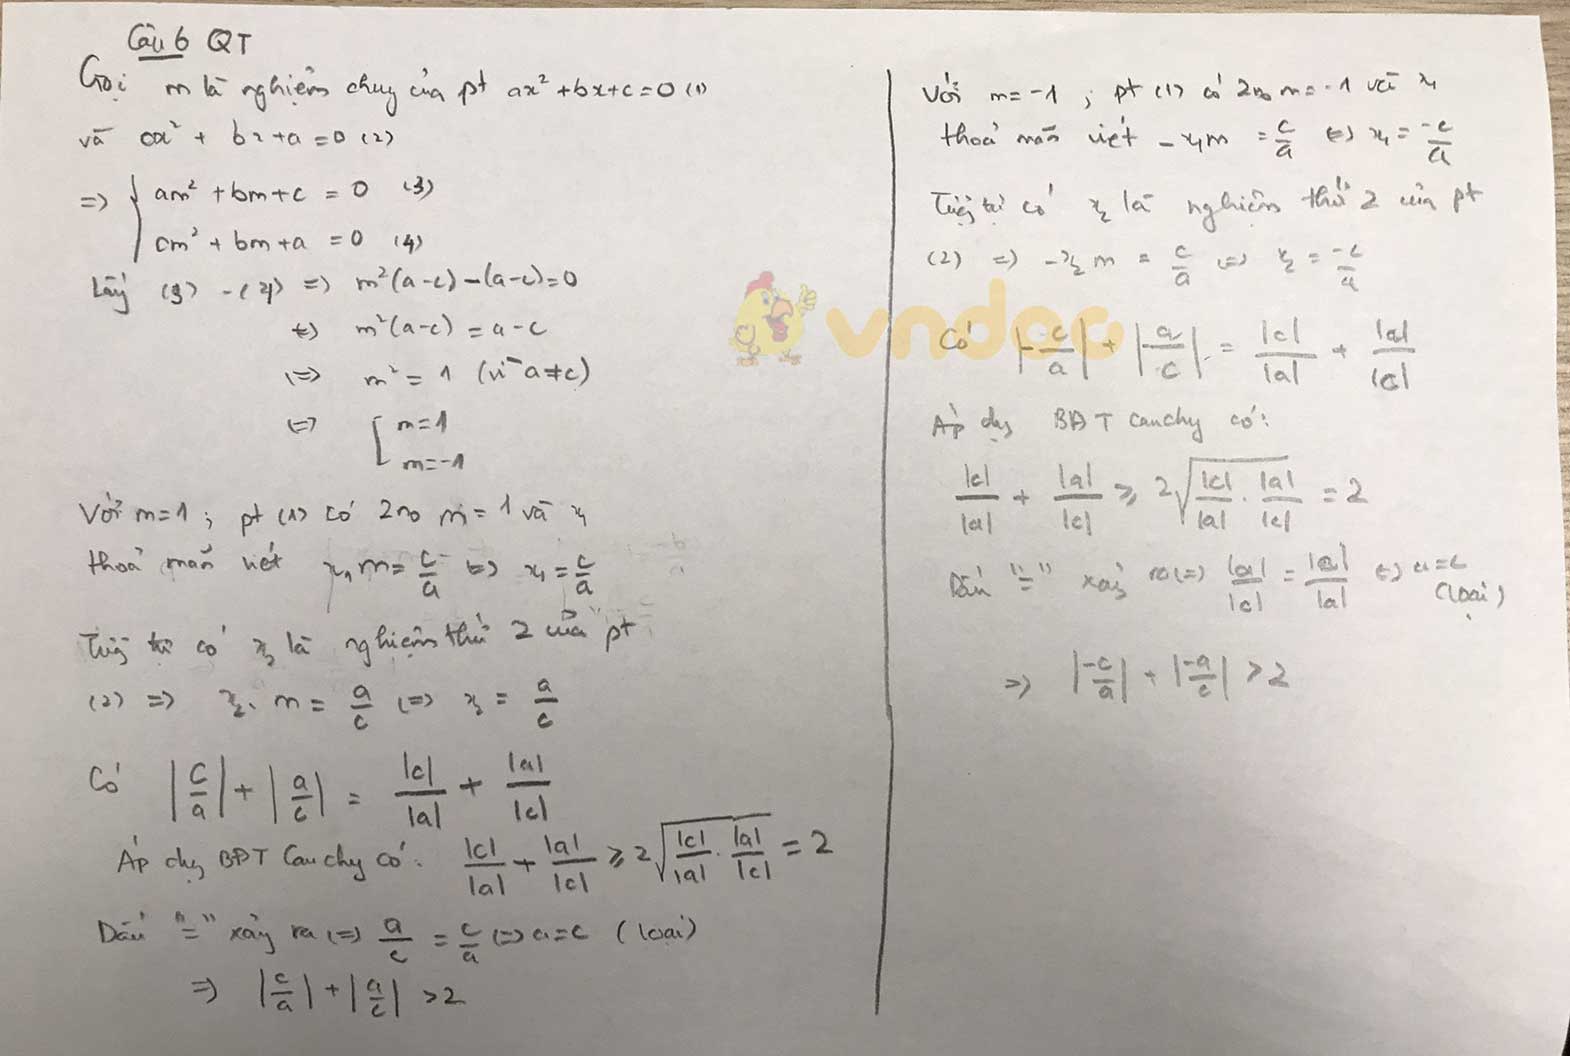 Câu 6 QT
Gọi m là nghiệm chung của pt ax² + bx + c = 0 (1)
và cx² + bx + a = 0 (2)
=> { am² + bm + c = 0 (3)
cm² + bm + a = 0 (4)
Lấy (3) - (4) => m²(a-c) - (a-c) = 0
<=> m²(a-c) = a-c
<=> m² = 1 (vì a≠c)
<=> [ m=1
m=-1
Với m=1 ; pt (1) có 2 no m=1 và x₁
thoả mãn viét x₁m = c/a <=> x₁ = c/a
Tương tự có x₂ là nghiệm thứ 2 của pt
(2) => x₂.m = a/c <=> x₂ = a/c
Có |c/a| + |a/c| = |c|/|a| + |a|/|c|
Áp dụng BĐT Cauchy có: |c|/|a| + |a|/|c| ≥ 2√(|c|/|a| . |a|/|c|) = 2
Dấu "=" xảy ra <=> a/c = c/a <=> a=c (loại)
=> |c/a| + |a/c| > 2
Với m=-1 ; pt (1) có 2 no m=-1 và x₁
thoả mãn viét -x₁m = c/a <=> x₁ = -c/a
Tương tự có x₂ là nghiệm thứ 2 của pt
(2) => -x₂m = c/a <=> x₂ = -c/a
vndoc
Có |-c/a| + |-a/c| = |c|/|a| + |a|/|c|
Áp dụng BĐT Cauchy có:
|c|/|a| + |a|/|c| ≥ 2√(|c|/|a| . |a|/|c|) = 2
Dấu "=" xảy ra <=> |a|/|c| = |a|/|a| <=> a=c
(loại)
=> |-c/a| + |-a/c| > 2